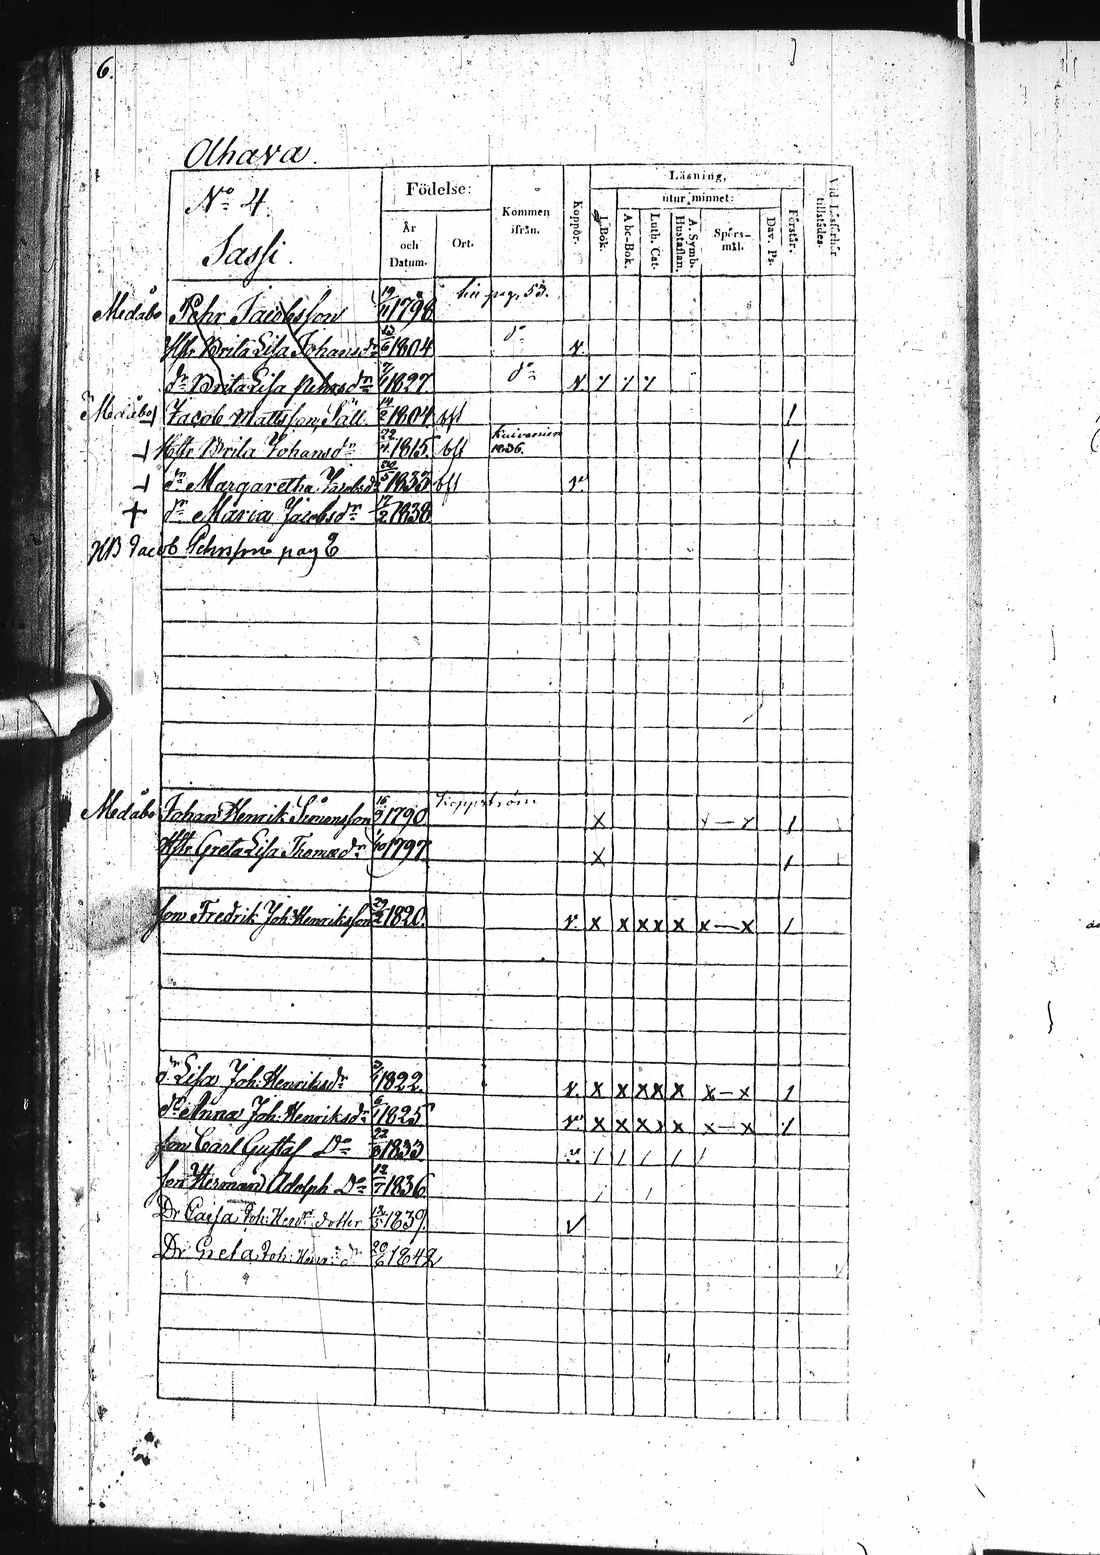 6.
Olhava.
No 4.
Sassi.
Födelse:
År och Datum.
Ort.
Kommen ifrån.
Koppor.
Läsning,
utur minnet:
I Bok.
Abc-Bok.
Luth. Cat.
A. Symb. Hustaflan.
Spörs-mål.
Dav. Ps.
Förstår.
Vid Läseförhör tillstädes.
Medåbo Pehr Jacobsson 19/11 1798 pag. 53.
Hstr Brita Lisa Johansdr 13/6 1804 do v.
dr Brita Lisa Pehrsdr 1827 do v
Medåbo Jacob Mattsson Säll 14/2 1804 bft 1
Hstr Brita Johansdr 22/4 1815. bft Kuivaniemi 1836. 1
dr Margaretha Jacobsdr 20/5 1833 bft v.
+ dr Maria Jacobsdr 17/2 1838
NB Jacob Pehrsson pag
Medåbo Johan Henrik Simonsson 16/9 1790 x 1
Hstr Greta Lisa Thomædr 1797. x 1
son Fredrik Joh: Henriksson 29/2 1820. v. x x x x x x — x 1
dr Lisa Joh: Henriksdr 1822. v. x x x x x x — x 1
do Anna Joh: Henriksdr 6/1 1825 v. x x x x x x — x 1
son Carl Gustaf Do 22/6 1833 v / / / / /
son Herman Adolph Do 12/7 1836
Dr Caisa Joh: Henr dotter 13/5 1839. v
Dr Greta Joh: Henr: dr 20/6 1842